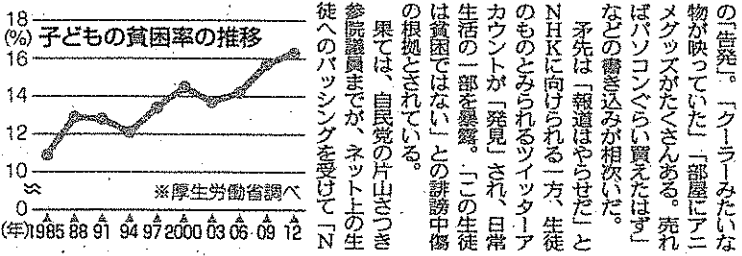 の「告発」。「クーラーみたいな
物が映っていた」「部屋にアニ
メグッズがたくさんある。売れ
ばパソコンぐらい買えたはず」
などの書き込みが相次いだ。
矛先は「報道はやらせだ」と
NHKに向けられる一方、生徒
のものとみられるツイッターア
カウントが「発見」され、日常
生活の一部を暴露。「この生徒
は貧困ではない」との誹謗中傷
の根拠とされている。
果ては、自民党の片山さつき
参院議員までが、ネット上の生
徒へのバッシングを受けて「N
子どもの貧困率の推移
(%)
18
16
14
12
10
0
※厚生労働省調べ
(年)1985 88 91 94 97 2000 03 06 09 12